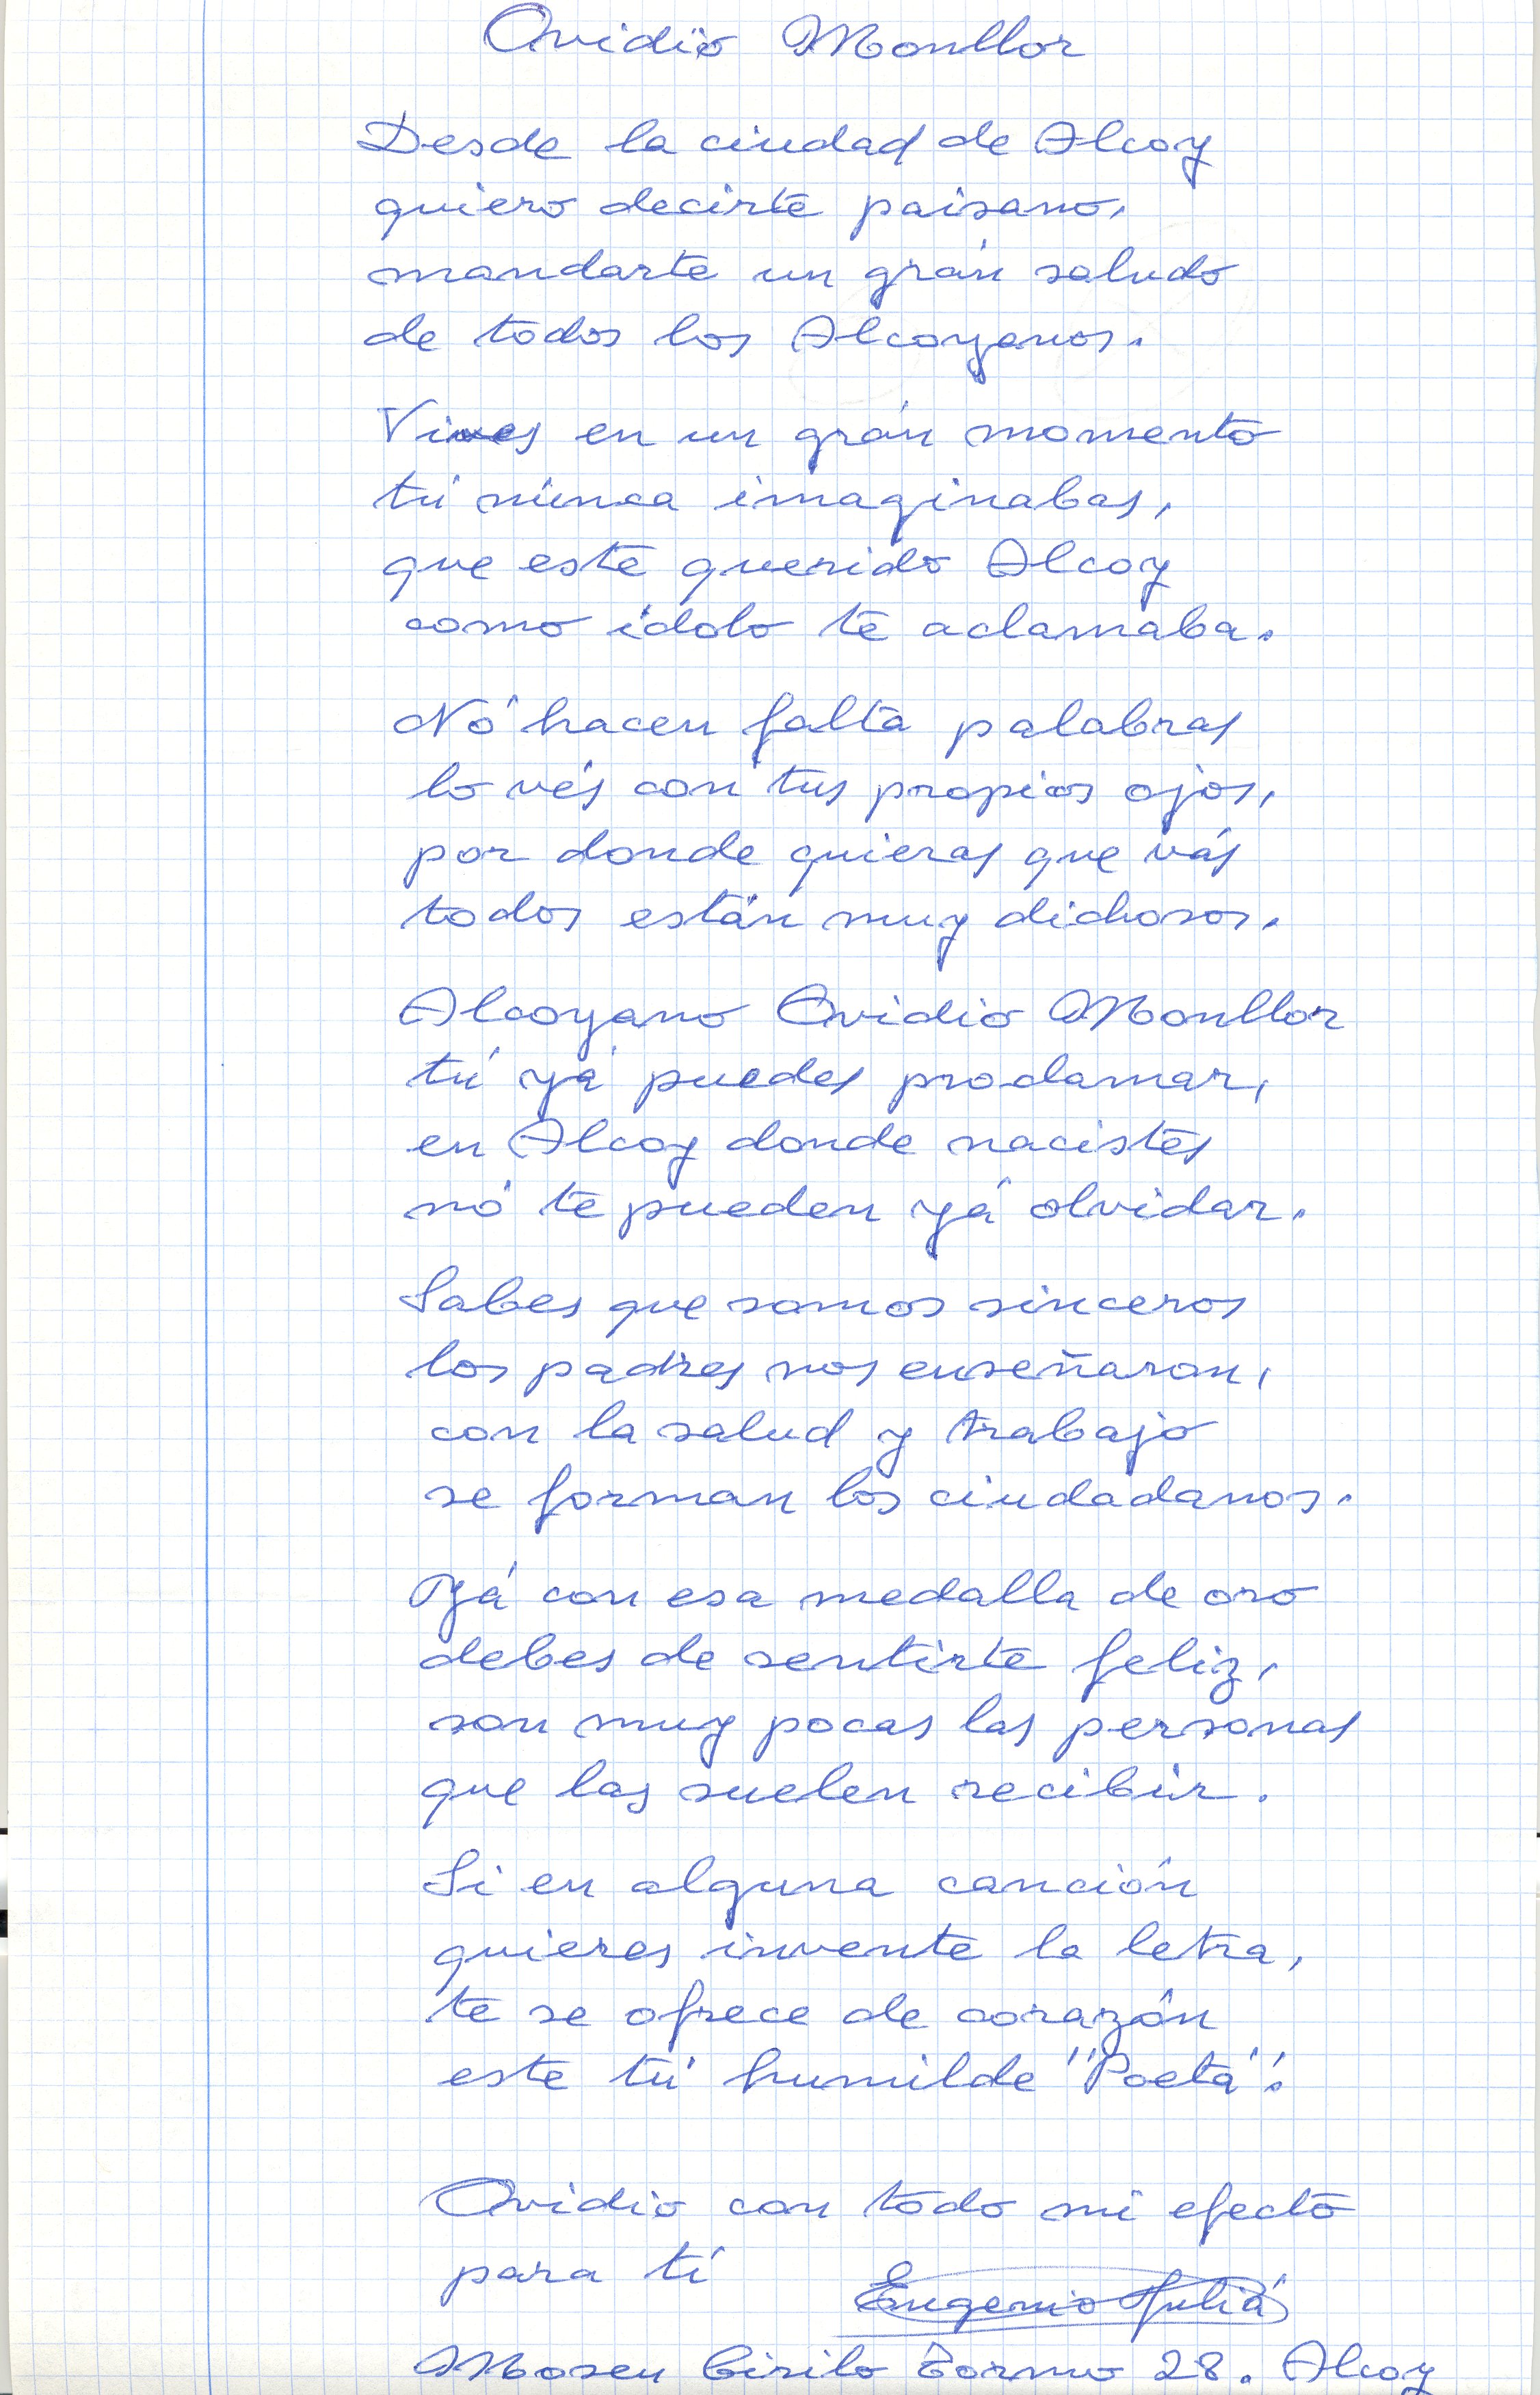 Ovidio Monllor
Desde la ciudad de Alcoy
quiero decirte paisano,
mandarte un grán saludo
de todos los Alcoyanos.
Vives en un grán momento
tú núnca imaginabas,
que este querido Alcoy
como ídolo te aclamaba.
Nó hacen falta palabras
lo vés con tus propios ojos,
por donde quieras que vás
todos están muy dichosos.
Alcoyano Ovidio Monllor
tú yá puedes proclamar,
en Alcoy donde nacistes
nó te pueden yá olvidar.
Sabes que somos sinceros
los padres nos enseñaron,
con la salud y trabajo
se forman los ciudadanos.
Yá con esa medalla de oro
debes de sentirte feliz,
son muy pocas las personas
que las suelen recibir.
Si en alguna canción
quieres invente la letra,
te se ofrece de corazón
este tú humilde "Poeta".
Ovidio con todo mi efecto
para tí
Eugenio Juliá
Mosen Cirilo Tormo 28. Alcoy